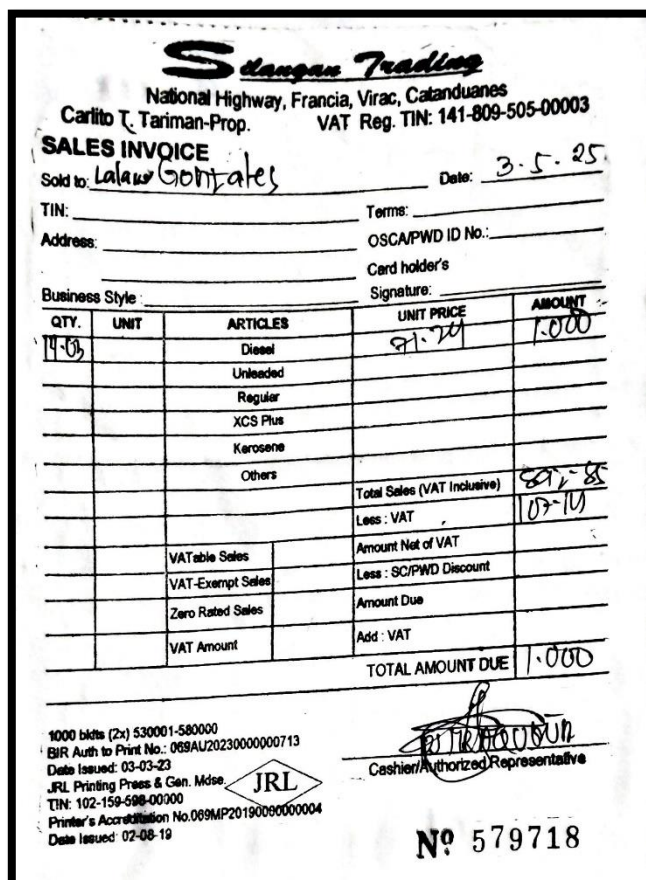 Silangan Trading
National Highway, Francia, Virac, Catanduanes
Carlito T. Tariman-Prop. VAT Reg. TIN: 141-809-505-00003
SALES INVOICE
Sold to: Gonzales Date: 3-5-25
TIN: Terms:
Address: OSCA/PWD ID No.:
Card holder's
Business Style: Signature:
QTY. UNIT ARTICLES UNIT PRICE AMOUNT
14.03 Diesel 71.24 1.000
Unleaded
Regular
XCS Plus
Kerosene
Others
Total Sales (VAT Inclusive)
Less : VAT 107-14
VATable Sales Amount Net of VAT
VAT-Exempt Sales Less : SC/PWD Discount
Zero Rated Sales Amount Due
VAT Amount Add : VAT
TOTAL AMOUNT DUE 1.000
1000 bklts (2x) 530001-580000
BIR Auth to Print No.: 069AU20230000000713
Date Issued: 03-03-23
JRL Printing Press & Gen. Mdse.
JRL
TIN: 102-159-598-00000
Printer's Accreditation No.069MP20190000000004
Date Issued: 02-08-19
Cashier/Authorized Representative
Nº 579718